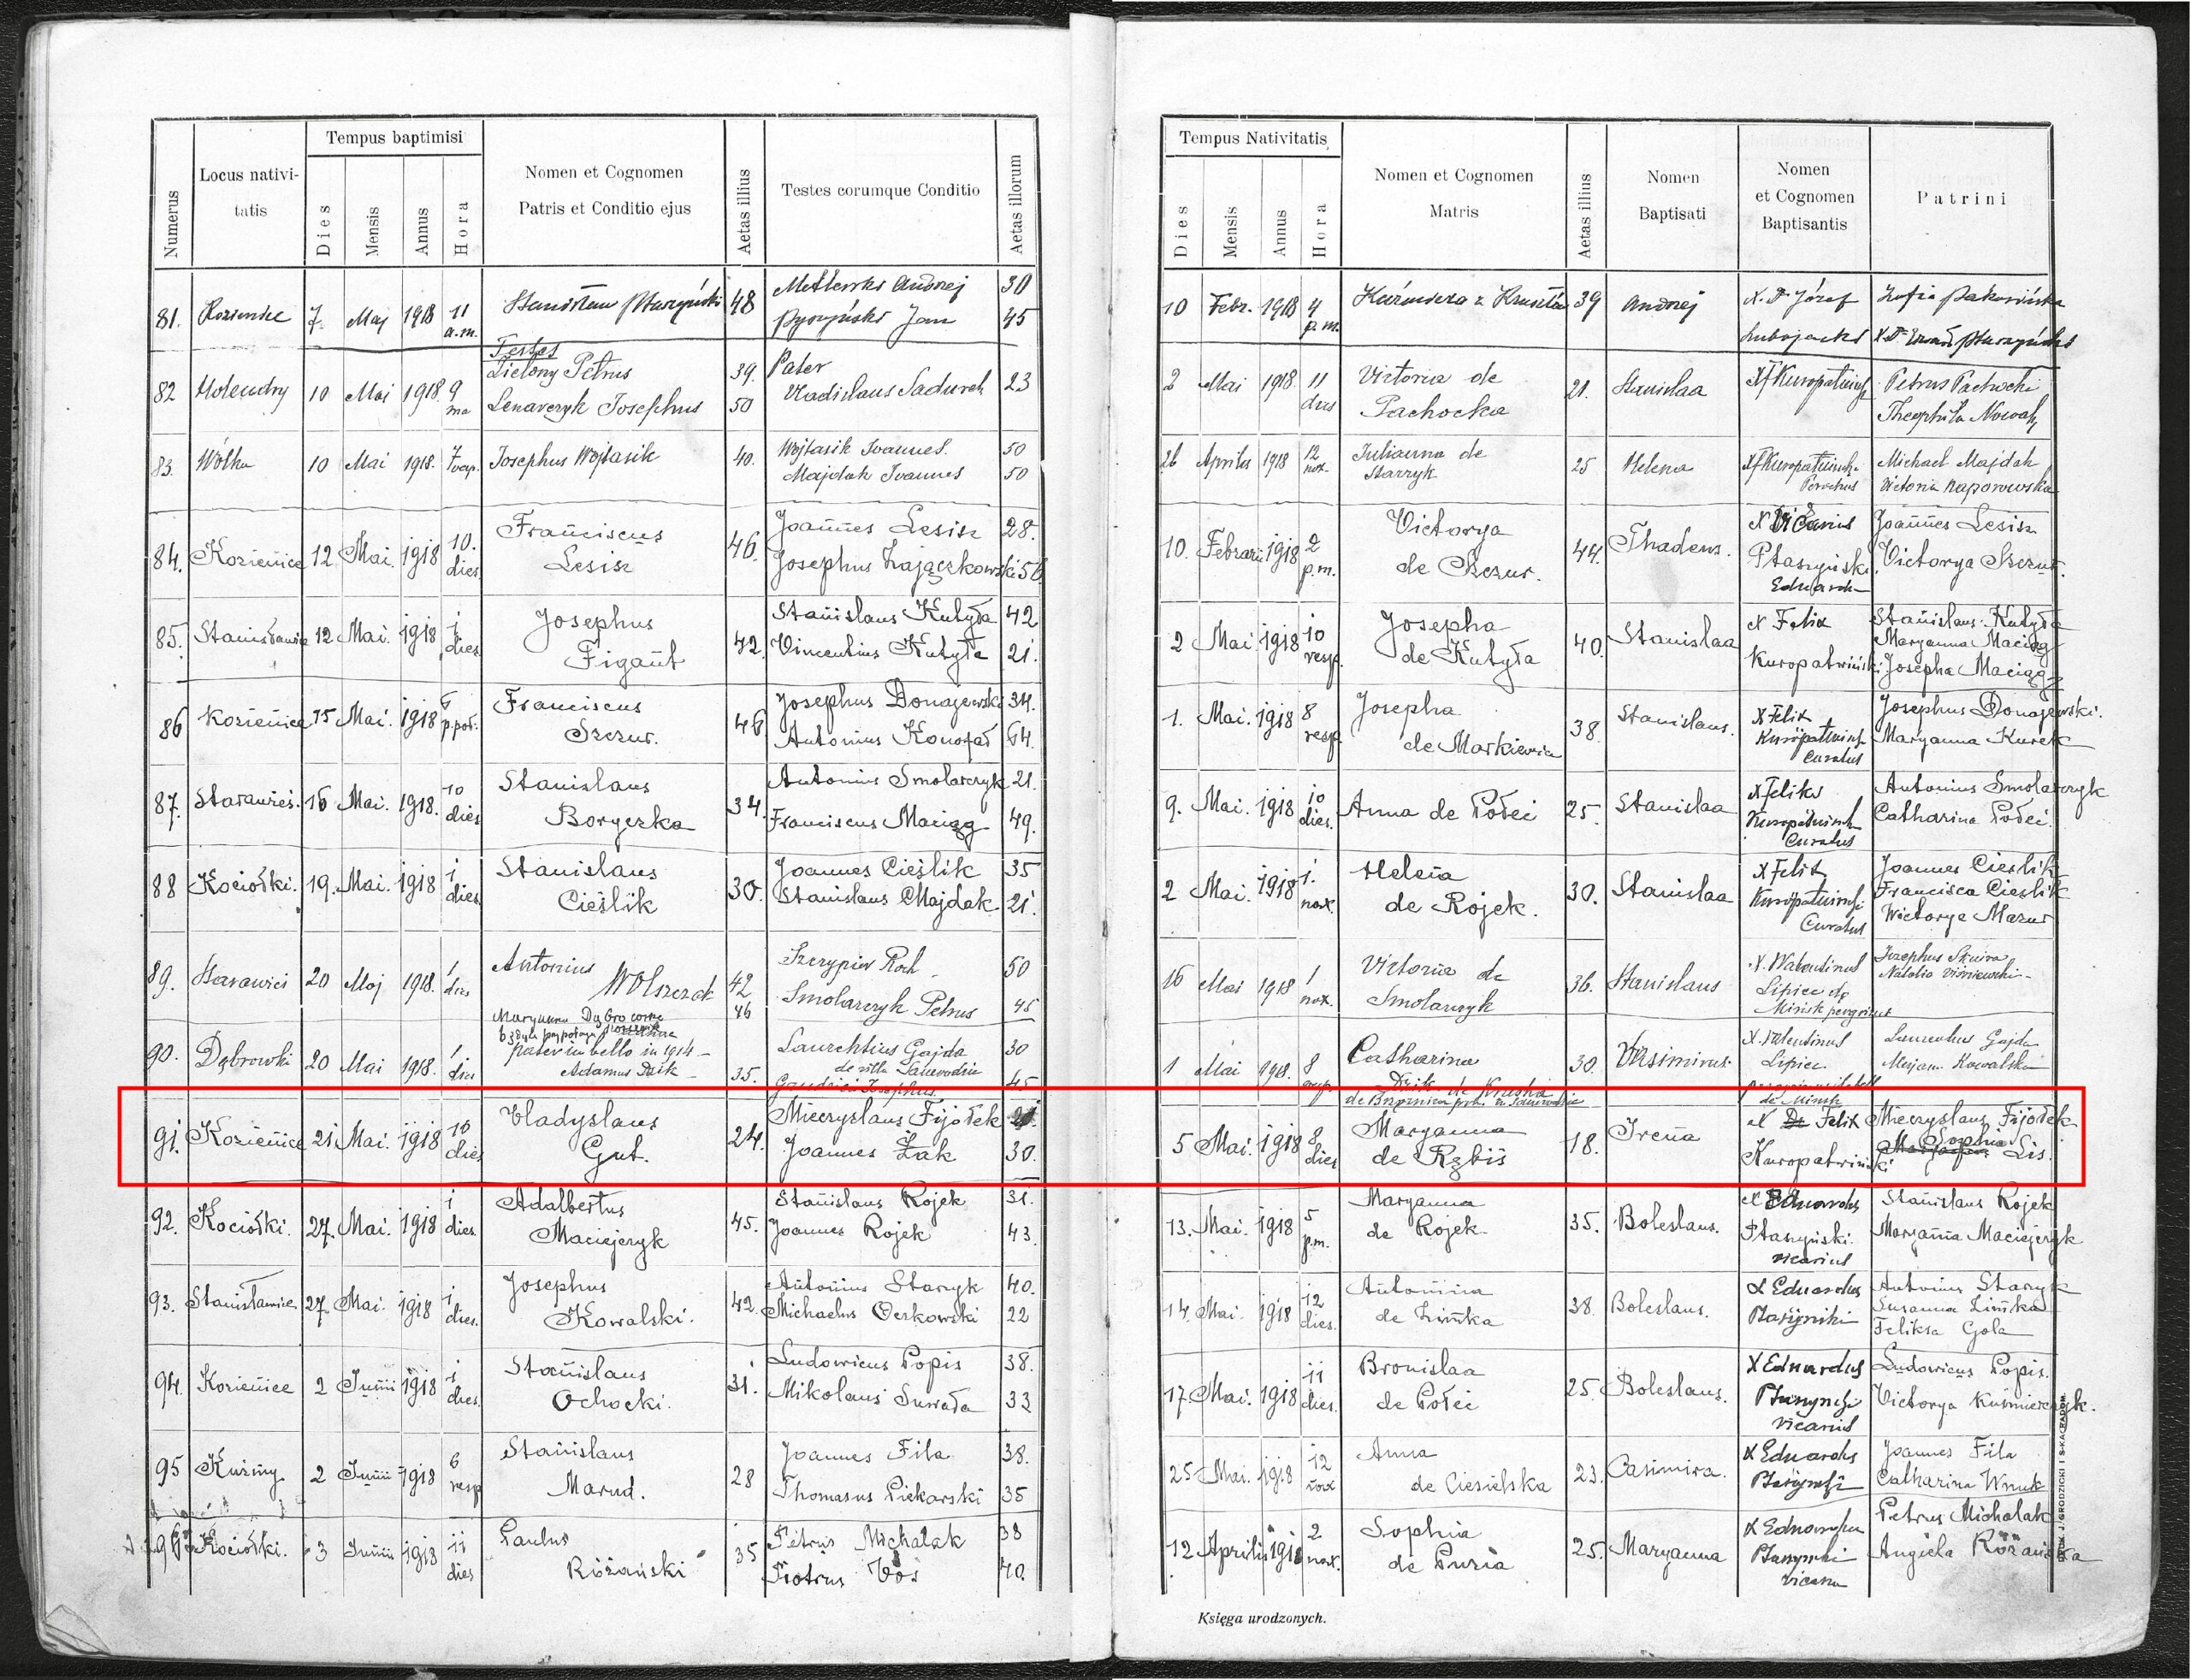 Numerus
Locus nativi-
tatis
Tempus baptimisi
Dies
Mensis
Annus
Hora
Nomen et Cognomen
Patris et Conditio ejus
Aetas illius
Testes eorumque Conditio
Aetas illorum
Tempus Nativitatis
Dies
Mensis
Annus
Hora
Nomen et Cognomen
Matris
Aetas illius
Nomen
Baptisati
Nomen
et Cognomen
Baptisantis
Patrini
81. 7. Maj 1918 11 a.m. Stanisław Ptaszyński 48 Andrzej 30
Jan 45
10 Febr. 1918 4 p.m. 39 Andrzej X. Dr Józef Zofia
82 Holendry 10 Mai 1918. 9 ma Testes
Zielony Petrus 39. Pater
Lenarczyk Josephus 50 Vladislaus Sadurek 23
2 Mai 1918 11 Victoria de
Pachocka 21. Stanislaa Petrus Pachocki
Theophila Nowak
83. Wólka 10 Mai 1918. 7 vesp. Josephus Wojtasik 40. Wojtasik Ioannes. 50
Majdak Ioannes 50
26 Aprilis 1918 12 nox. Iulianna de
Starzyk 25 Helena Michael Majdak
Victoria Naporowska
84. Kozienice 12. Mai. 1918 10. dies. Franciscus
Lesisz 46. Joannes Lesisz 28.
Josephus Zajączkowski 56
10. Februari 1918 2 p.m. Victorya
de Szczur. 44. Thadeus. X Vicarius
Ptaszyński
Eduard Joannes Lesisz
Victorya Szczur.
85. Stanisławice 12 Mai. 1918 1 dies. Josephus
Figant 42. Stanislaus Kutyła 42
Vincentius Kutyła 21.
2 Mai. 1918 10 vesp. Josepha
de Kutyła 40. Stanislaa X Felix
Kuropatwiński Stanislaus Kutyła
Maryanna Maciąg
Josepha Maciąg
86 Kozienice 15 Mai. 1918 6 p.poł. Franciscus
Szczur. 46 Josephus Donajewski 34.
Antonius Konofał 64.
1. Mai. 1918 8 vesp. Josepha
de Markiewicz 38. Stanislaus. X Felix
Curatus Josephus Donajewski.
Maryanna Kurek
87. 16 Mai. 1918. 10 dies Stanislaus
Boryczka 34. Antonius Smolarczyk 21.
Franciscus Maciąg 49.
9. Mai. 1918 10 dies. Anna de Połeć 25. Stanislaa X Feliks
Curatus Antonius Smolarczyk
Catharina Połeć.
88 Kociołki. 19. Mai. 1918 1 dies. Stanislaus
Cieślik 30. Joannes Cieślik 35
Stanislaus Majdak 21.
2 Mai. 1918 1. nox. Helena
de Rojek. 30. Stanislaa X Felix
Curatus Joannes Cieslik
Francisca Cieslik
Wictorya Mazur
89. 20 Maj 1918. 1 dies Antonius
Wolszczak 42 Szczypior Roch 50
46 Smolarczyk Petrus 45
16 Mai 1918 1 nox. Victoria de
Smolarczyk 36. Stanislaus X. Walentinus
Lipiec de
Minsk Josephus Skwira
90. Dąbrowki 20 Mai 1918. 1 dies pater in bello in 1914
Adamus 35. Laurentius Gajda 30
45
1 Mai 1918. 8 Catharina 30. X. Valentinus
Lipiec
de Minsk Laurentius Gajda
Marjan. Kowalska
91. Kozienice 21 Mai. 1918 10 dies Vladyslaus
Gut. 24. Mieczyslaus Fijołek
Joannes Żak 30.
5 Mai. 1918 8 dies Maryanna
de Rębiś 18. Irena X Dr Felix
Kuropatwiński Mieczyslaus Fijołek
Sophia Lis.
92. Kociołki. 27. Mai. 1918 1 dies. Adalbertus
Maciejczyk 45. Stanislaus Rojek 31.
Joannes Rojek 43.
13. Mai. 1918 5 p.m. Maryanna
de Rojek 35. Boleslaus. X Eduardus
Ptaszyński.
vicarius Stanislaus Rojek
Maryanna Maciejczyk
93. Stanisławice 27. Mai. 1918 1 dies. Josephus
Kowalski. 42. Antonius Starzyk 40.
Michaelus Ockowski 22
14. Mai. 1918 12 dies. Antonina
de Zimka 38. Boleslaus. X Eduardus
Ptaszyński Antonius Starzyk
Susanna Zimka
Feliksa Gola
94. Kozienice 2 Junii 1918 1 dies. Stanislaus
Ochocki. 31. Ludovicus Popis 38.
Mikolaus Suwała 33
17. Mai. 1918 11 dies. Bronislaa
de Połeć 25. Boleslaus. X Eduardus
Ptaszyński
vicarius Ludovicus Popis.
Victorya Kuśmierczyk.
95 Kuźmy 2 Junii 1918 6 vesp Stanislaus
Marud. 28 Joannes Fila 38.
Thomasus Piekarski 35
25 Mai. 1918 12 nox Anna
de Ciesielska 23. Casimira. X Eduardus
Ptaszyński Joannes Fila
Catharina Wnuk
96. Kociołki. 3 Junii 1918 11 dies Paulus
Różański 35 Petrus Michalak 38
Piotrus Woś 40.
12 Aprilis 1918 2 nox. Sophia
de Puzia 25. Maryanna X Eduardus
Ptaszyński
vicarius Petrus Michalak
Angiela Różańska
Księga urodzonych.
DRUK. J. GRODZICKI I S-KA, RADOM.